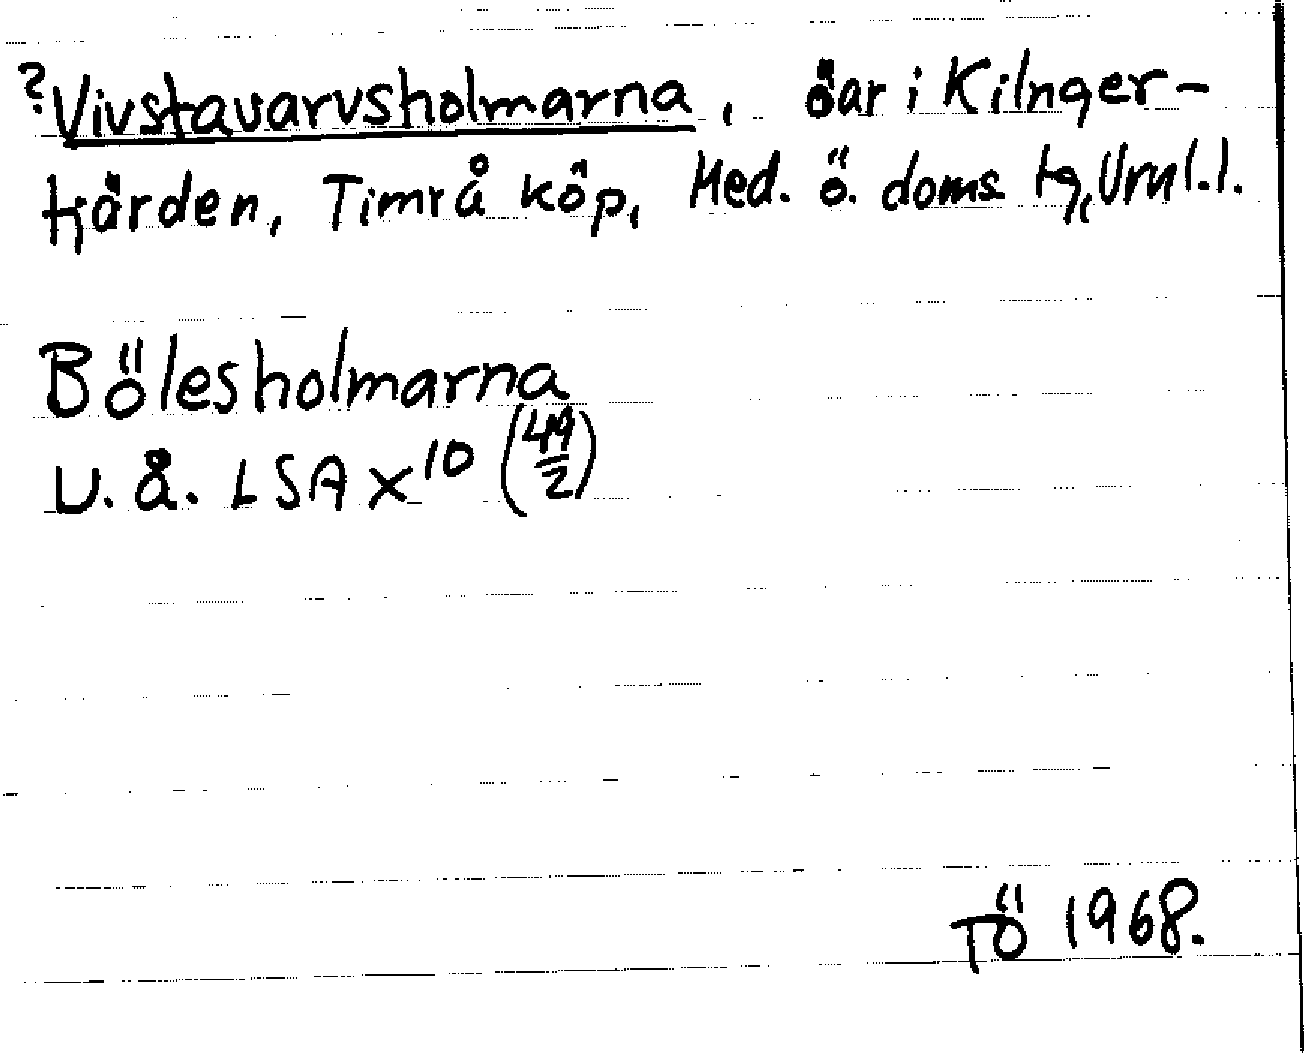 ?Vivstavarvsholmarna, öar i Kilnger-
fjärden, Timrå köp, Med. ö. doms tg, Vrnl.l.
Bölesholmarna
U. å. LSA X¹⁰ (49/2)
TÖ 1968.